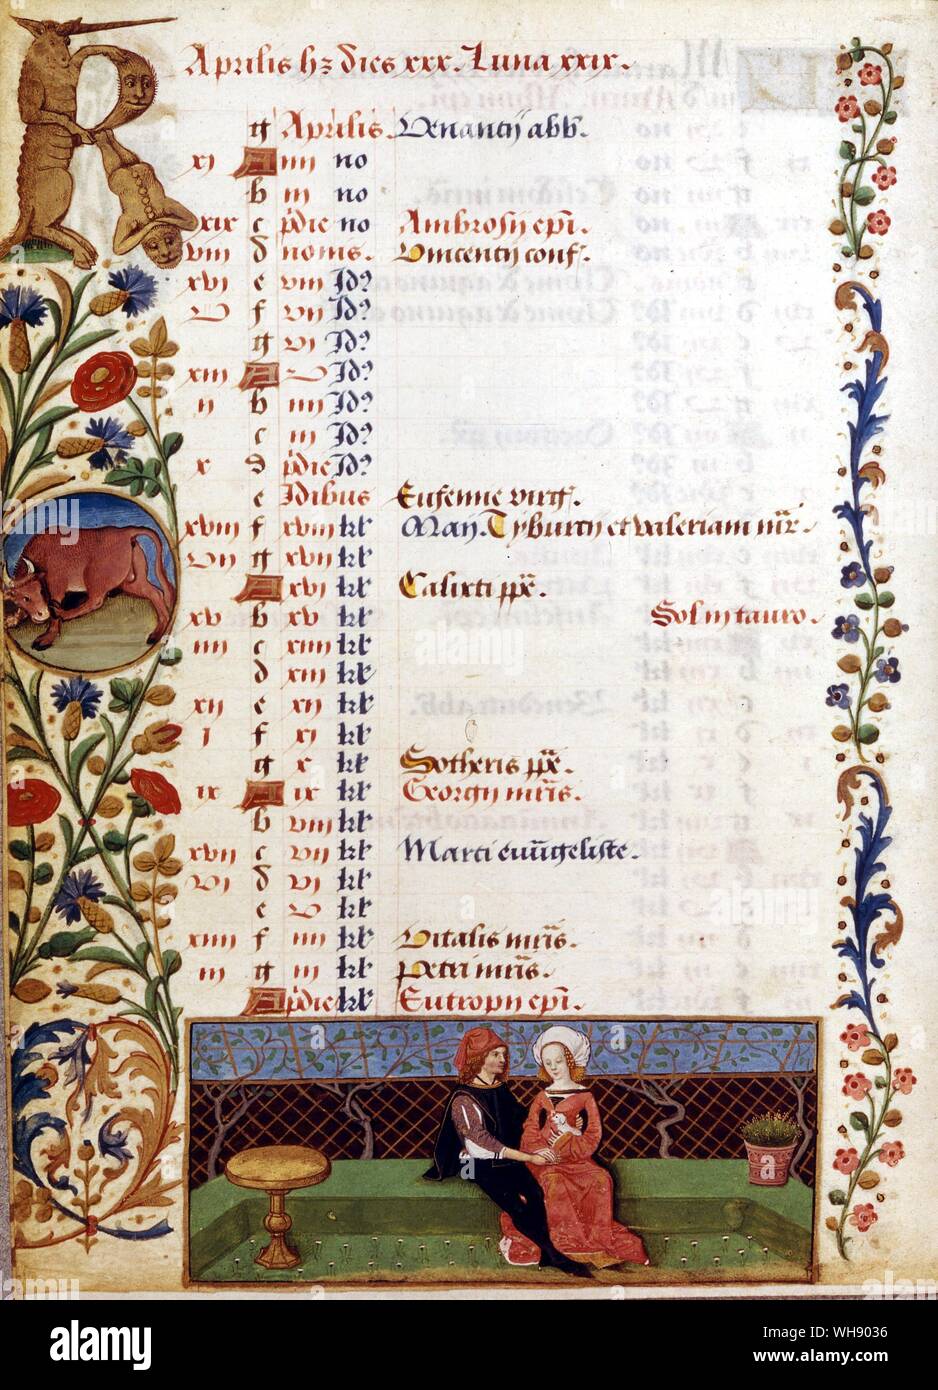 KL Aprilis hz dies xxx. Luna xxix.
g Aprilis. Venantij abb.
xi A iiii no
b iii no
xix c pdie no Ambrosij epi.
viii d nonis. Vincentij conf.
xvi e viii Id?
v f vii Id?
g vi Id?
xiii A v Id?
ii b iiii Id?
c iii Id?
x d pdie Id?
e Idibus Eufemie virg.
xviii f xviii kl' Maij. Tyburtij et valeriani mr.
vii g xvii kl'
A xvi kl' Calixti pp.
xv b xv kl' Sol in tauro.
iiii c xiiii kl'
d xiii kl'
xii e xii kl'
i f xi kl'
g x kl' Sotheris pp.
ix A ix kl' Georgij mris.
b viii kl'
xvii c vii kl' Marci evangeliste.
vi d vi kl'
e v kl'
xiiii f iiii kl' Vitalis mris.
iii g iii kl' Petri mris.
A pdie kl' Eutropij epi.
alamy
alamy
alamy
alamy
Image ID: WH9036
www.alamy.com